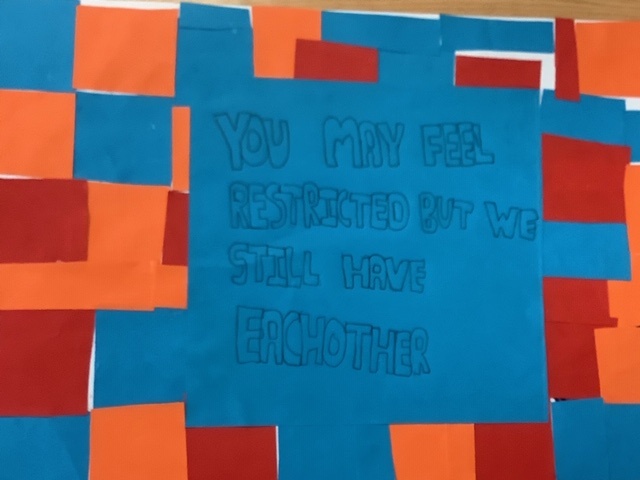 YOU MAY FEEL
RESTRICTED BUT WE
STILL HAVE
EACHOTHER